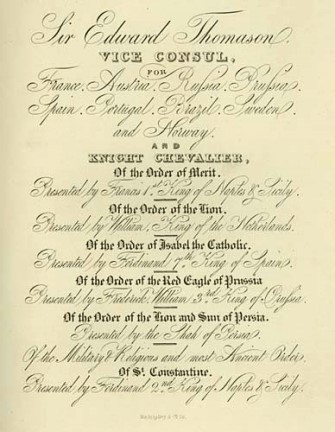 Sir Edward Thomason.
VICE CONSUL,
FOR
France, Austria, Russia, Prussia,
Spain, Portugal, Brazil, Sweden,
and Norway,
AND
KNIGHT CHEVALIER,
Of the Order of Merit.
Presented by Francis 1st King of Naples & Sicily.
Of the Order of the Lion.
Presented by William, King of the Netherlands.
Of the Order of Isabel the Catholic.
Presented by Ferdinand 7th King of Spain.
Of the Order of the Red Eagle of Prussia
Presented by Frederick William 3rd King of Prussia.
Of the Order of the Lion and Sun of Persia.
Presented by the Shah of Persia.
Of the Military & Religious and most Ancient Order
Of St. Constantine.
Presented by Ferdinand 2nd King of Naples & Sicily.